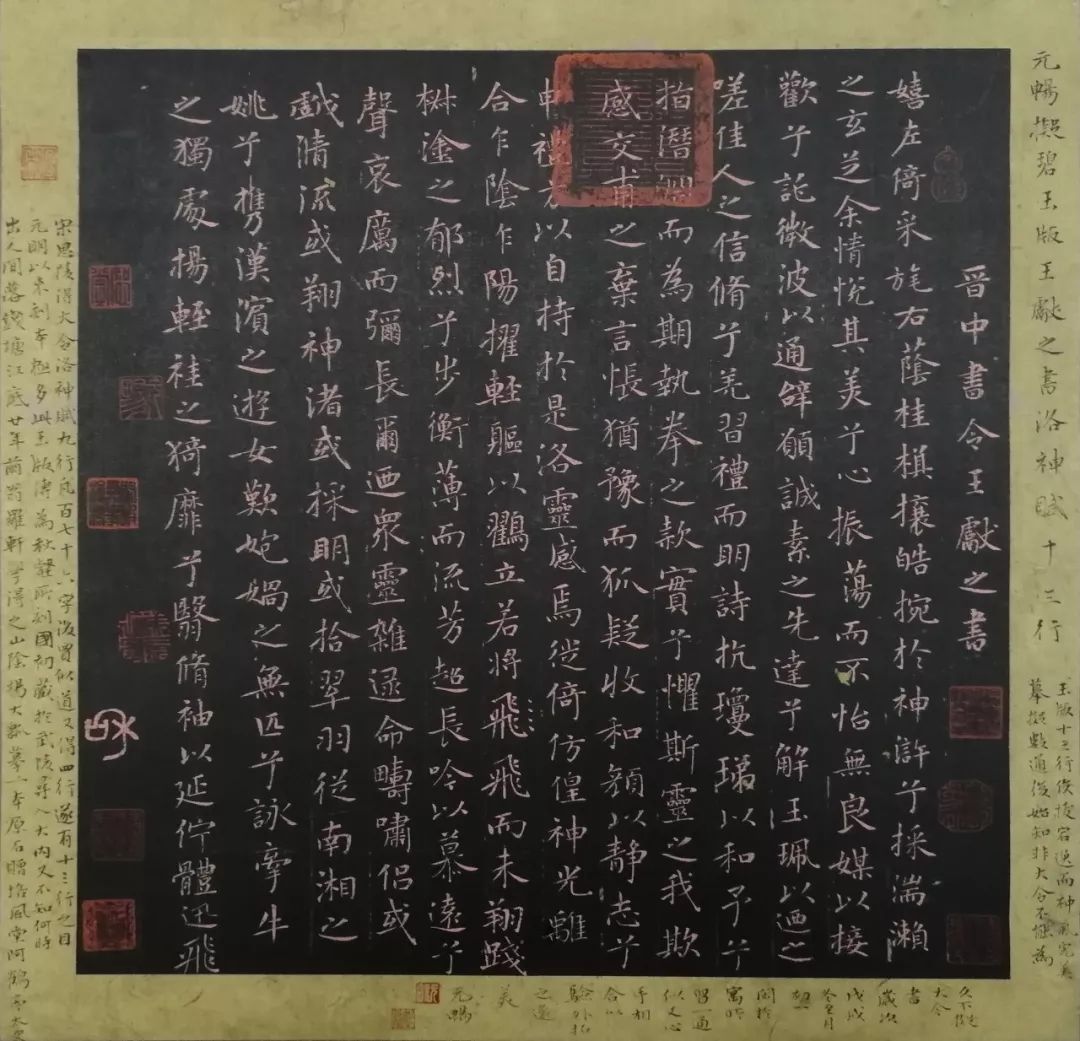 元暢擬碧玉版王獻之書洛神賦十三行
玉版十三行俊拔容逸而神風完美
摹擬數通後始知非大令不能為
晉中書令王獻之書
嬉左倚采旄右蔭桂棋攘皓捥於神滸兮採湍瀨
之玄芝余情悅其美兮心振蕩而不怡無良媒以接
歡兮託微波以通辭願誠素之先達兮解玉珮以
嗟佳人之信脩兮羌習禮而明詩抗瓊珶以和予兮
指潛而為期執拳之款實兮懼斯靈之我欺
感交甫之棄言悵猶豫而狐疑收和顏以靜志兮
申禮以自持於是洛靈感焉徙倚仿偟神光離
合乍陰乍陽擢輕軀以鸖立若將飛飛而未翔踐
椒塗之郁烈兮步衡薄而流芳超長吟以慕遠兮
聲哀厲而彌長爾迺眾靈雜遝命疇嘯侶或
戲清流或翔神渚或採明或拾翠羽從南湘之
姚兮攜漢濱之遊女歎匏媧之無匹兮詠牽牛
之獨處揚輕袿之猗靡兮翳脩袖以延佇體迅飛
宋思陵得大令洛神賦九行凡百七十六字後賈似道又得四行遂有十三行之目
元明以來刻本極多此玉版傳為秋壑所刻國初藏於武陵尋入大內又不知何時
出人間落錢塘江底廿年前翁羅軒
久不臨
大令
書
歲次
戊戌
冬月